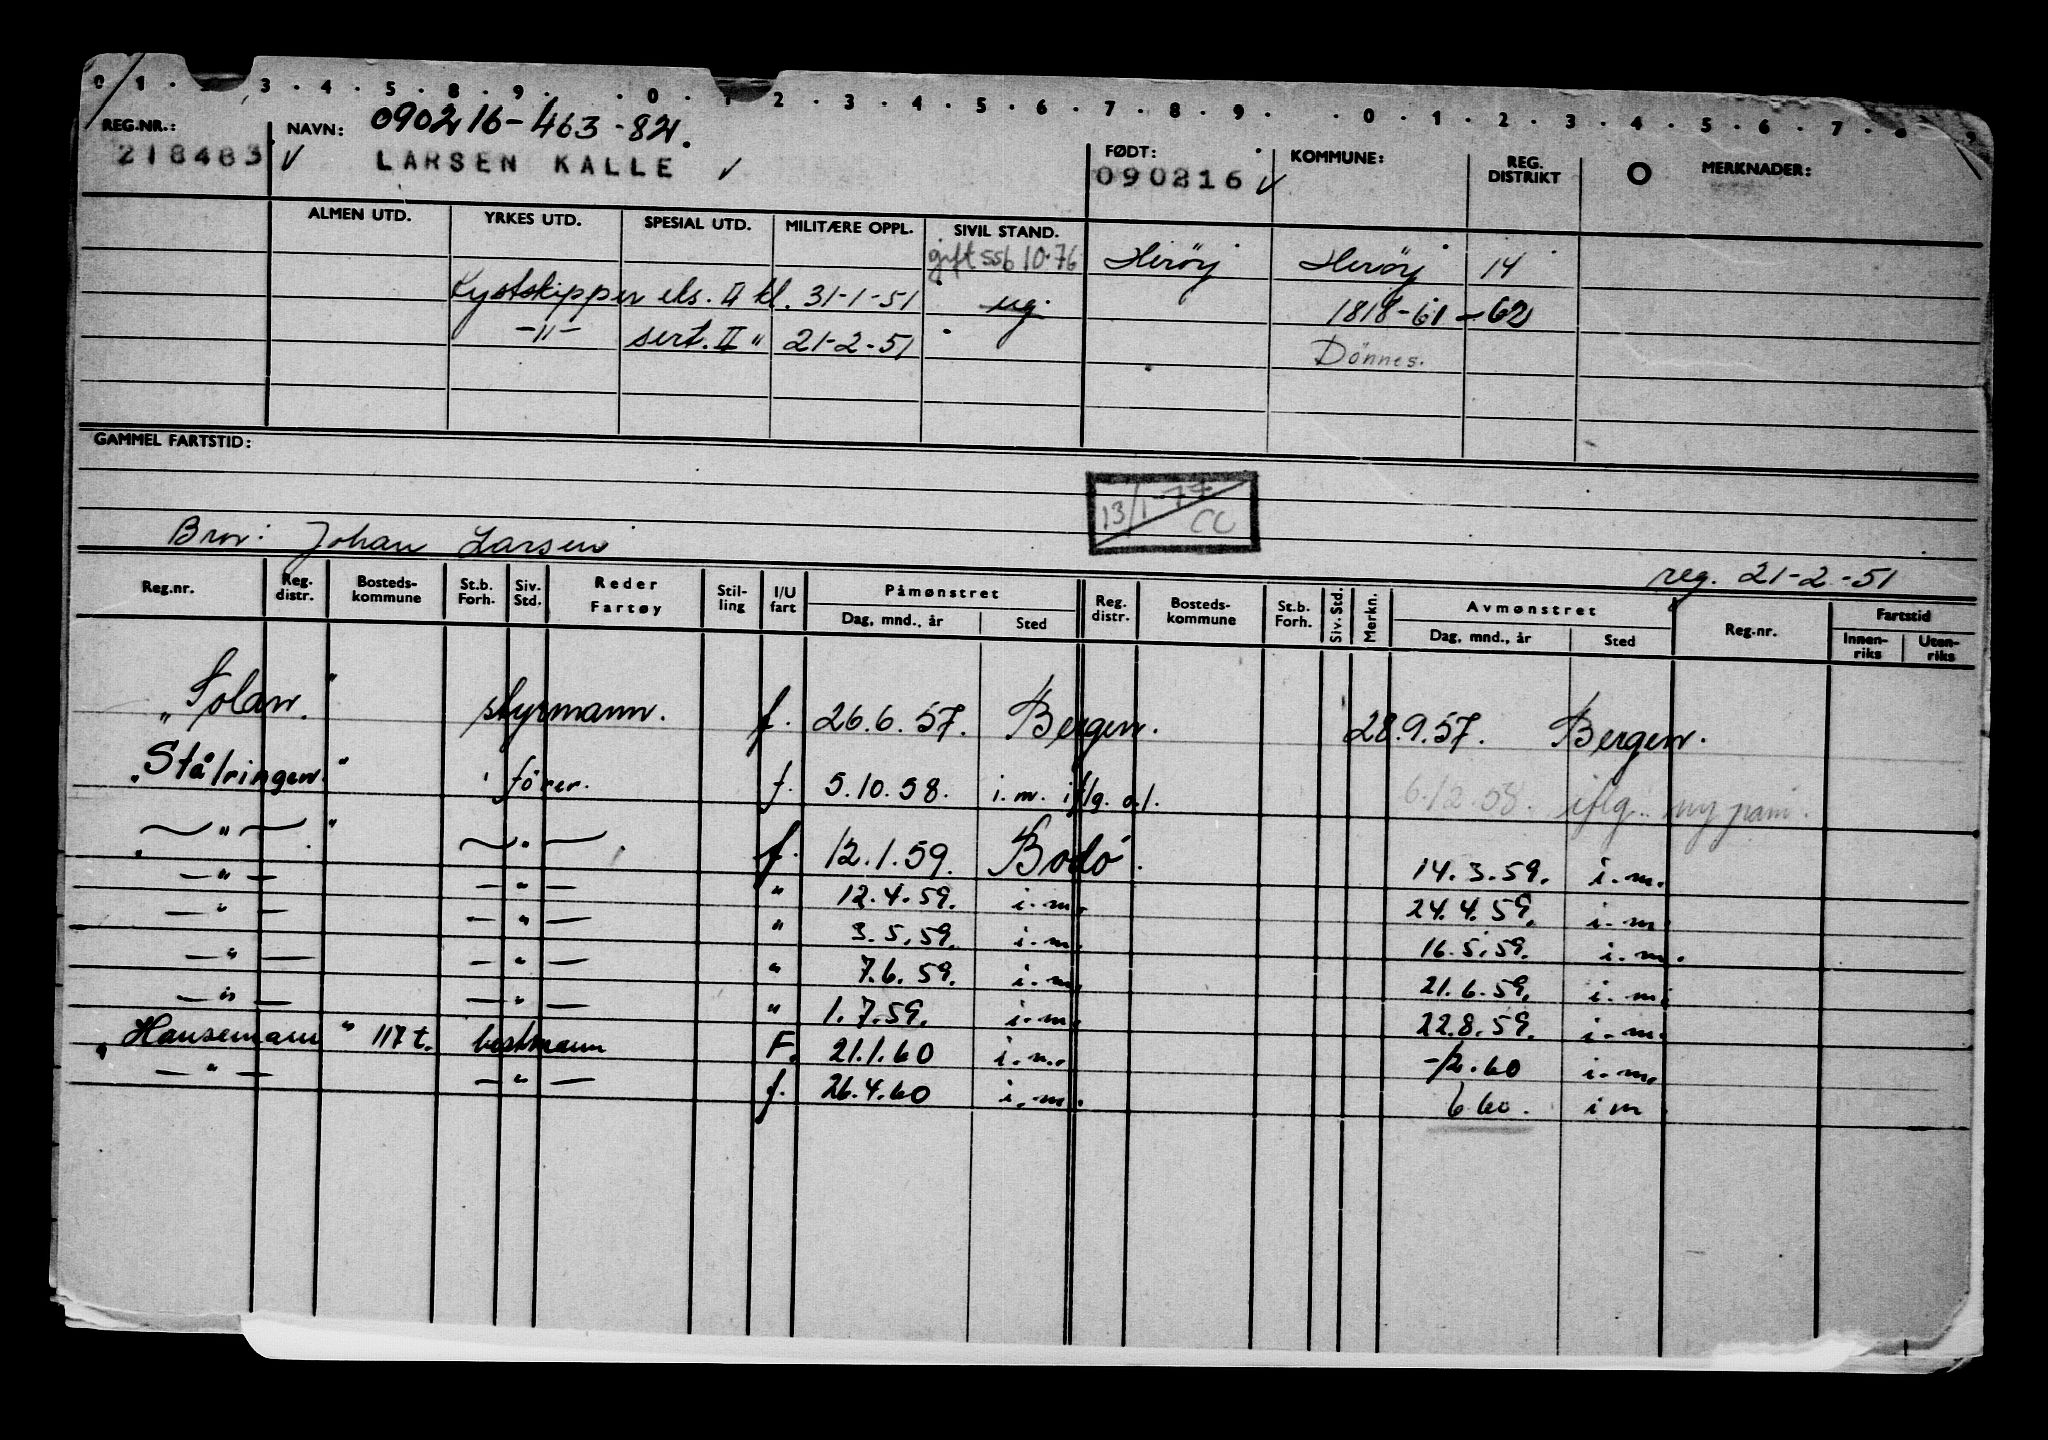 0 1 . . 3 . 4 . 5 . 8 . 9 . . 0 . 1 2 . 3 . 4 . 5 . 6 . 7 . 8 . 9 . . 0 . 1 . 2 . 3 . 4 . 5 . 6 . 7 . 8 . 9
090216-463-82.
REG.NR.: NAVN: FØDT: KOMMUNE: REG. DISTRIKT O MERKNADER:
218483 ✓ LARSEN KALLE ✓ 090216 ✓
ALMEN UTD. YRKES UTD. SPESIAL UTD. MILITÆRE OPPL. SIVIL STAND.
gift ssb 10.76 Herøy Herøy 14
Kystskipper eks. II kl. 31-1-51 ug. 1818-61-62
-"- sert. II " 21-2-51 Dönnes.
GAMMEL FARTSTID:
13/1-77 CC
Bror: Johan Larsen
reg. 21-2-51
Reg.nr. Reg. distr. Bosteds-kommune St.b. Forh. Siv. Std. Reder Fartøy Stil-ling I/U fart Påmønstret Dag, mnd., år Sted Reg. distr. Bosteds-kommune St.b. Forh. Siv. Std. Merkn. Avmønstret Dag, mnd., år Sted Reg.nr. Fartstid Innen-riks Uten-riks
"Solan." styrmann. f. 26.6.57. Bergen. 28.9.57. Bergen.
"Stålringen" förer. f. 5.10.58. i.m. iflg. o.l. 6.12.58. iflg. ny påm.
-"- " -"- f. 12.1.59. Bodö. 14.3.59. i.m.
-"- -"- " 12.4.59. i.m. 24.4.59. i.m.
-"- -"- " 3.5.59. i.m. 16.5.59. i.m.
-"- -"- " 7.6.59. i.m. 21.6.59. i.m.
-"- -"- " 1.7.59. i.m. 22.8.59. i.m.
"Hansemann" 117 t. bestmann F. 21.1.60 i.m. -/2.60 i.m.
-"- -"- f. 26.4.60 i.m. 6.60. i m